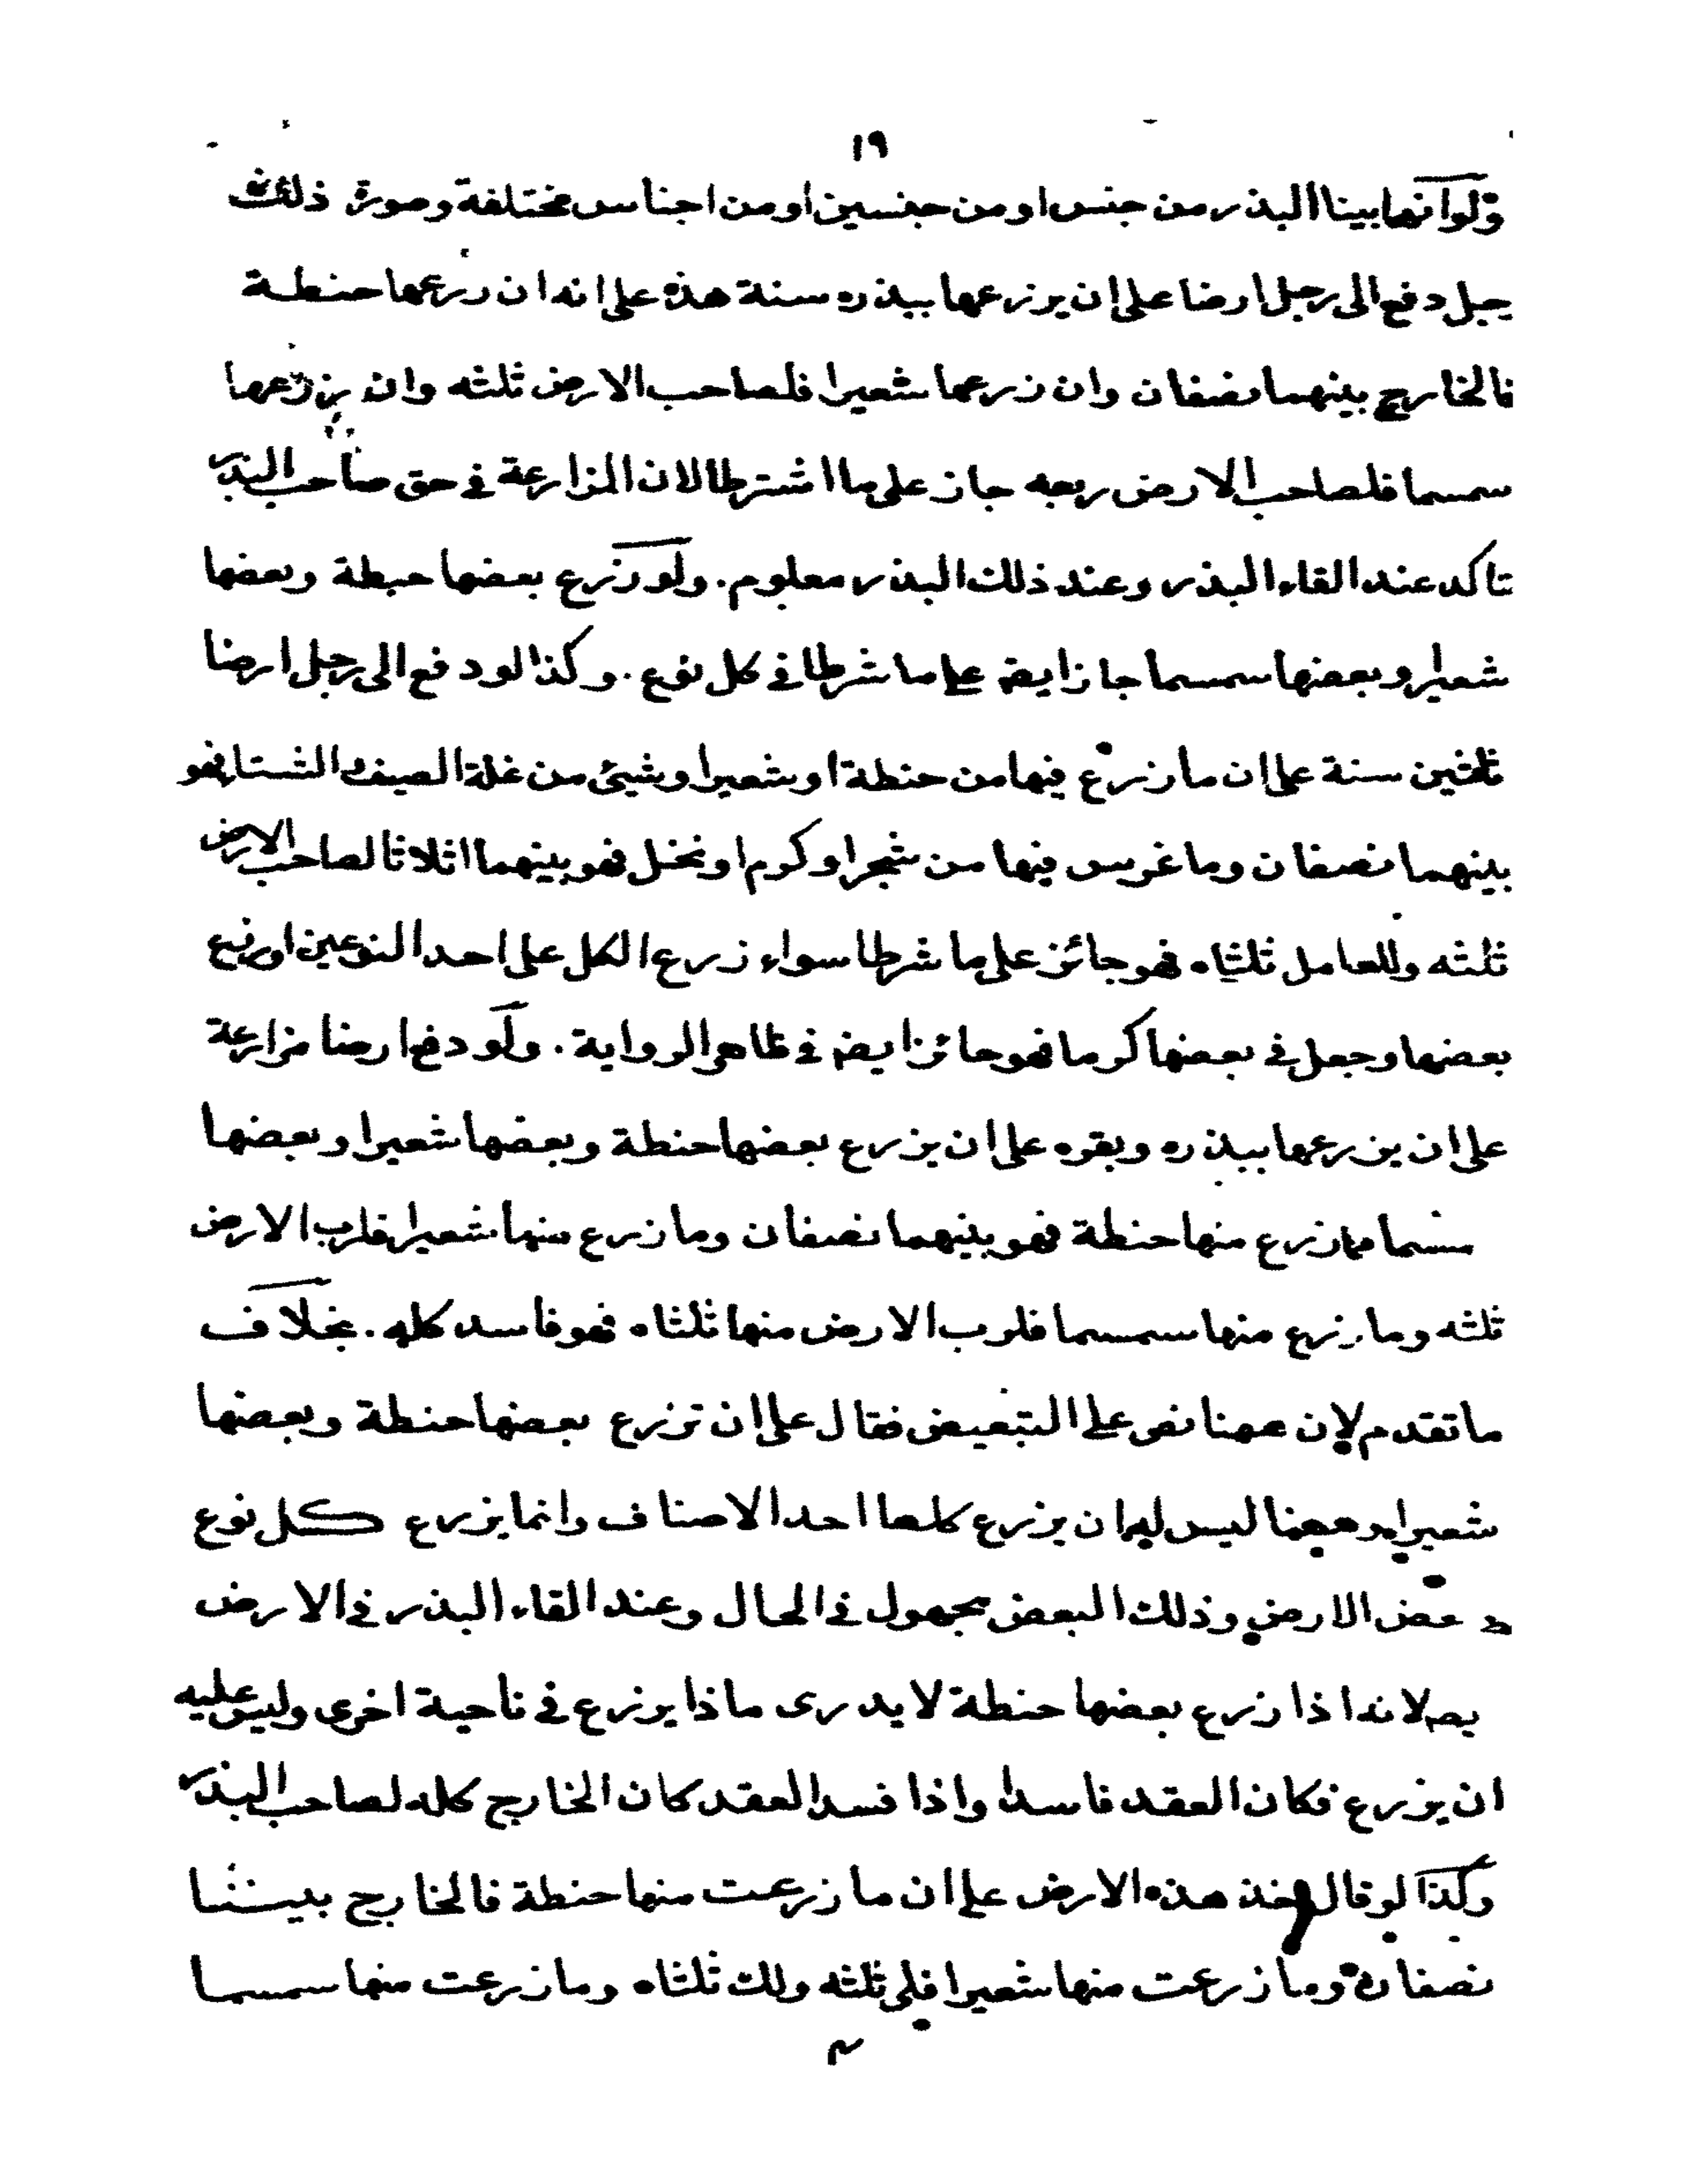 ١٩
ولو انهما بينا البذر من جنس او من جنسين او من اجناس مختلفة وصورة ذلك
رجل دفع الى رجل ارضا على ان يزرعها ببذره سنة هذه على انه ان زرعها حنطة
فالخارج بينهما نصفان وان زرعها شعيرا فلصاحب الارض ثلثه وان زرعها
سمسما فلصاحب الارض ربعه جاز على ما اشترطا لان المزارعة في حق صاحب البذر
تاكد عند القاء البذر وعند ذلك البذر معلوم. ولو زرع بعضها حنطة وبعضها
شعيرا وبعضها سمسما جاز ايضا على ما شرطا في كل نوع. وكذا لو دفع الى رجل ارضا
ثلثين سنة على ان ما زرع فيها من حنطة او شعير او شيئ من غلة الصيف والشتا فهو
بينهما نصفان وما غرس فيها من شجر او كرم او نخل فهو بينهما اثلاثا لصاحب الارض
ثلثه وللعامل ثلثاه فهو جائز على ما شرطا سواء زرع الكل على احد النوعين او زرع
بعضها وجعل في بعضها كرما فهو جائز ايضا في ظاهر الرواية. ولو دفع ارضا مزارعة
على ان يزرعها ببذره وبقره على ان يزرع بعضها حنطة وبعضها شعيرا وبعضها
سمسما فما زرع منها حنطة فهو بينهما نصفان وما زرع منها شعيرا فلرب الارض
ثلثه وما زرع منها سمسما فلرب الارض منها ثلثاه فهو فاسد كله. بخلاف
ما تقدم لان ههنا نص على التبعيض فقال على ان تزرع بعضها حنطة وبعضها
شعيرا وههنا ليس له ان يزرع كلها احد الاصناف وانما يزرع كل نوع
بعض الارض وذلك البعض مجهول في الحال وعند القاء البذر في الارض
لانه اذا زرع بعضها حنطة لا يدرى ماذا يزرع في ناحية اخرى وليس عليه
ان يزرع فكان العقد فاسدا واذا فسد العقد كان الخارج كله لصاحب البذر
وكذا لو قال خذ هذه الارض على ان ما زرعت منها حنطة فالخارج بيننا
نصفان وما زرعت منها شعيرا فلي ثلثه ولك ثلثاه وما زرعت منها سمسما